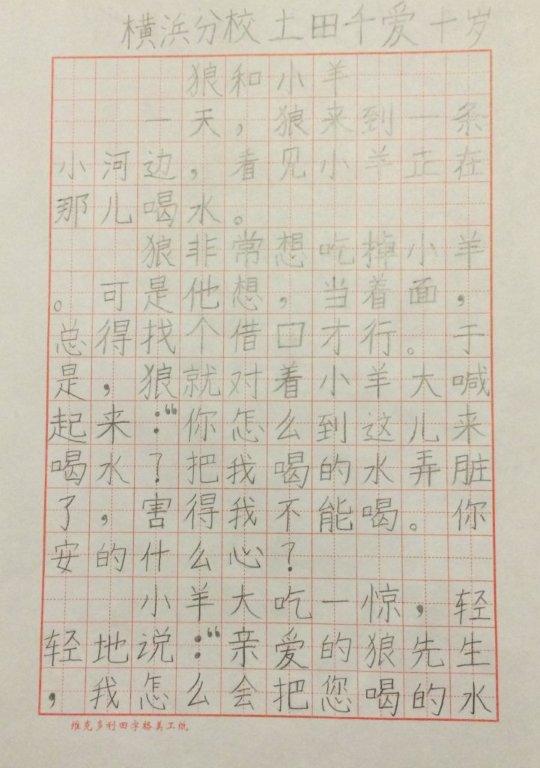 横浜分校土田千爱十岁
狼和小羊
一天，狼来到一条
小河边，看见小羊正在
那儿喝水。
狼非常想吃掉小羊
。可是他想，当着面，
总得找个借口才行。于
是，狼就对着小羊大喊
起来：“你怎么到这儿来
喝水？把我喝的水弄脏
了，害得我不能喝。你
安的什么心？
小羊大吃一惊，轻
轻地说：“亲爱的狼先生
，我怎么会把您喝的水
维克多利田字格美工纸